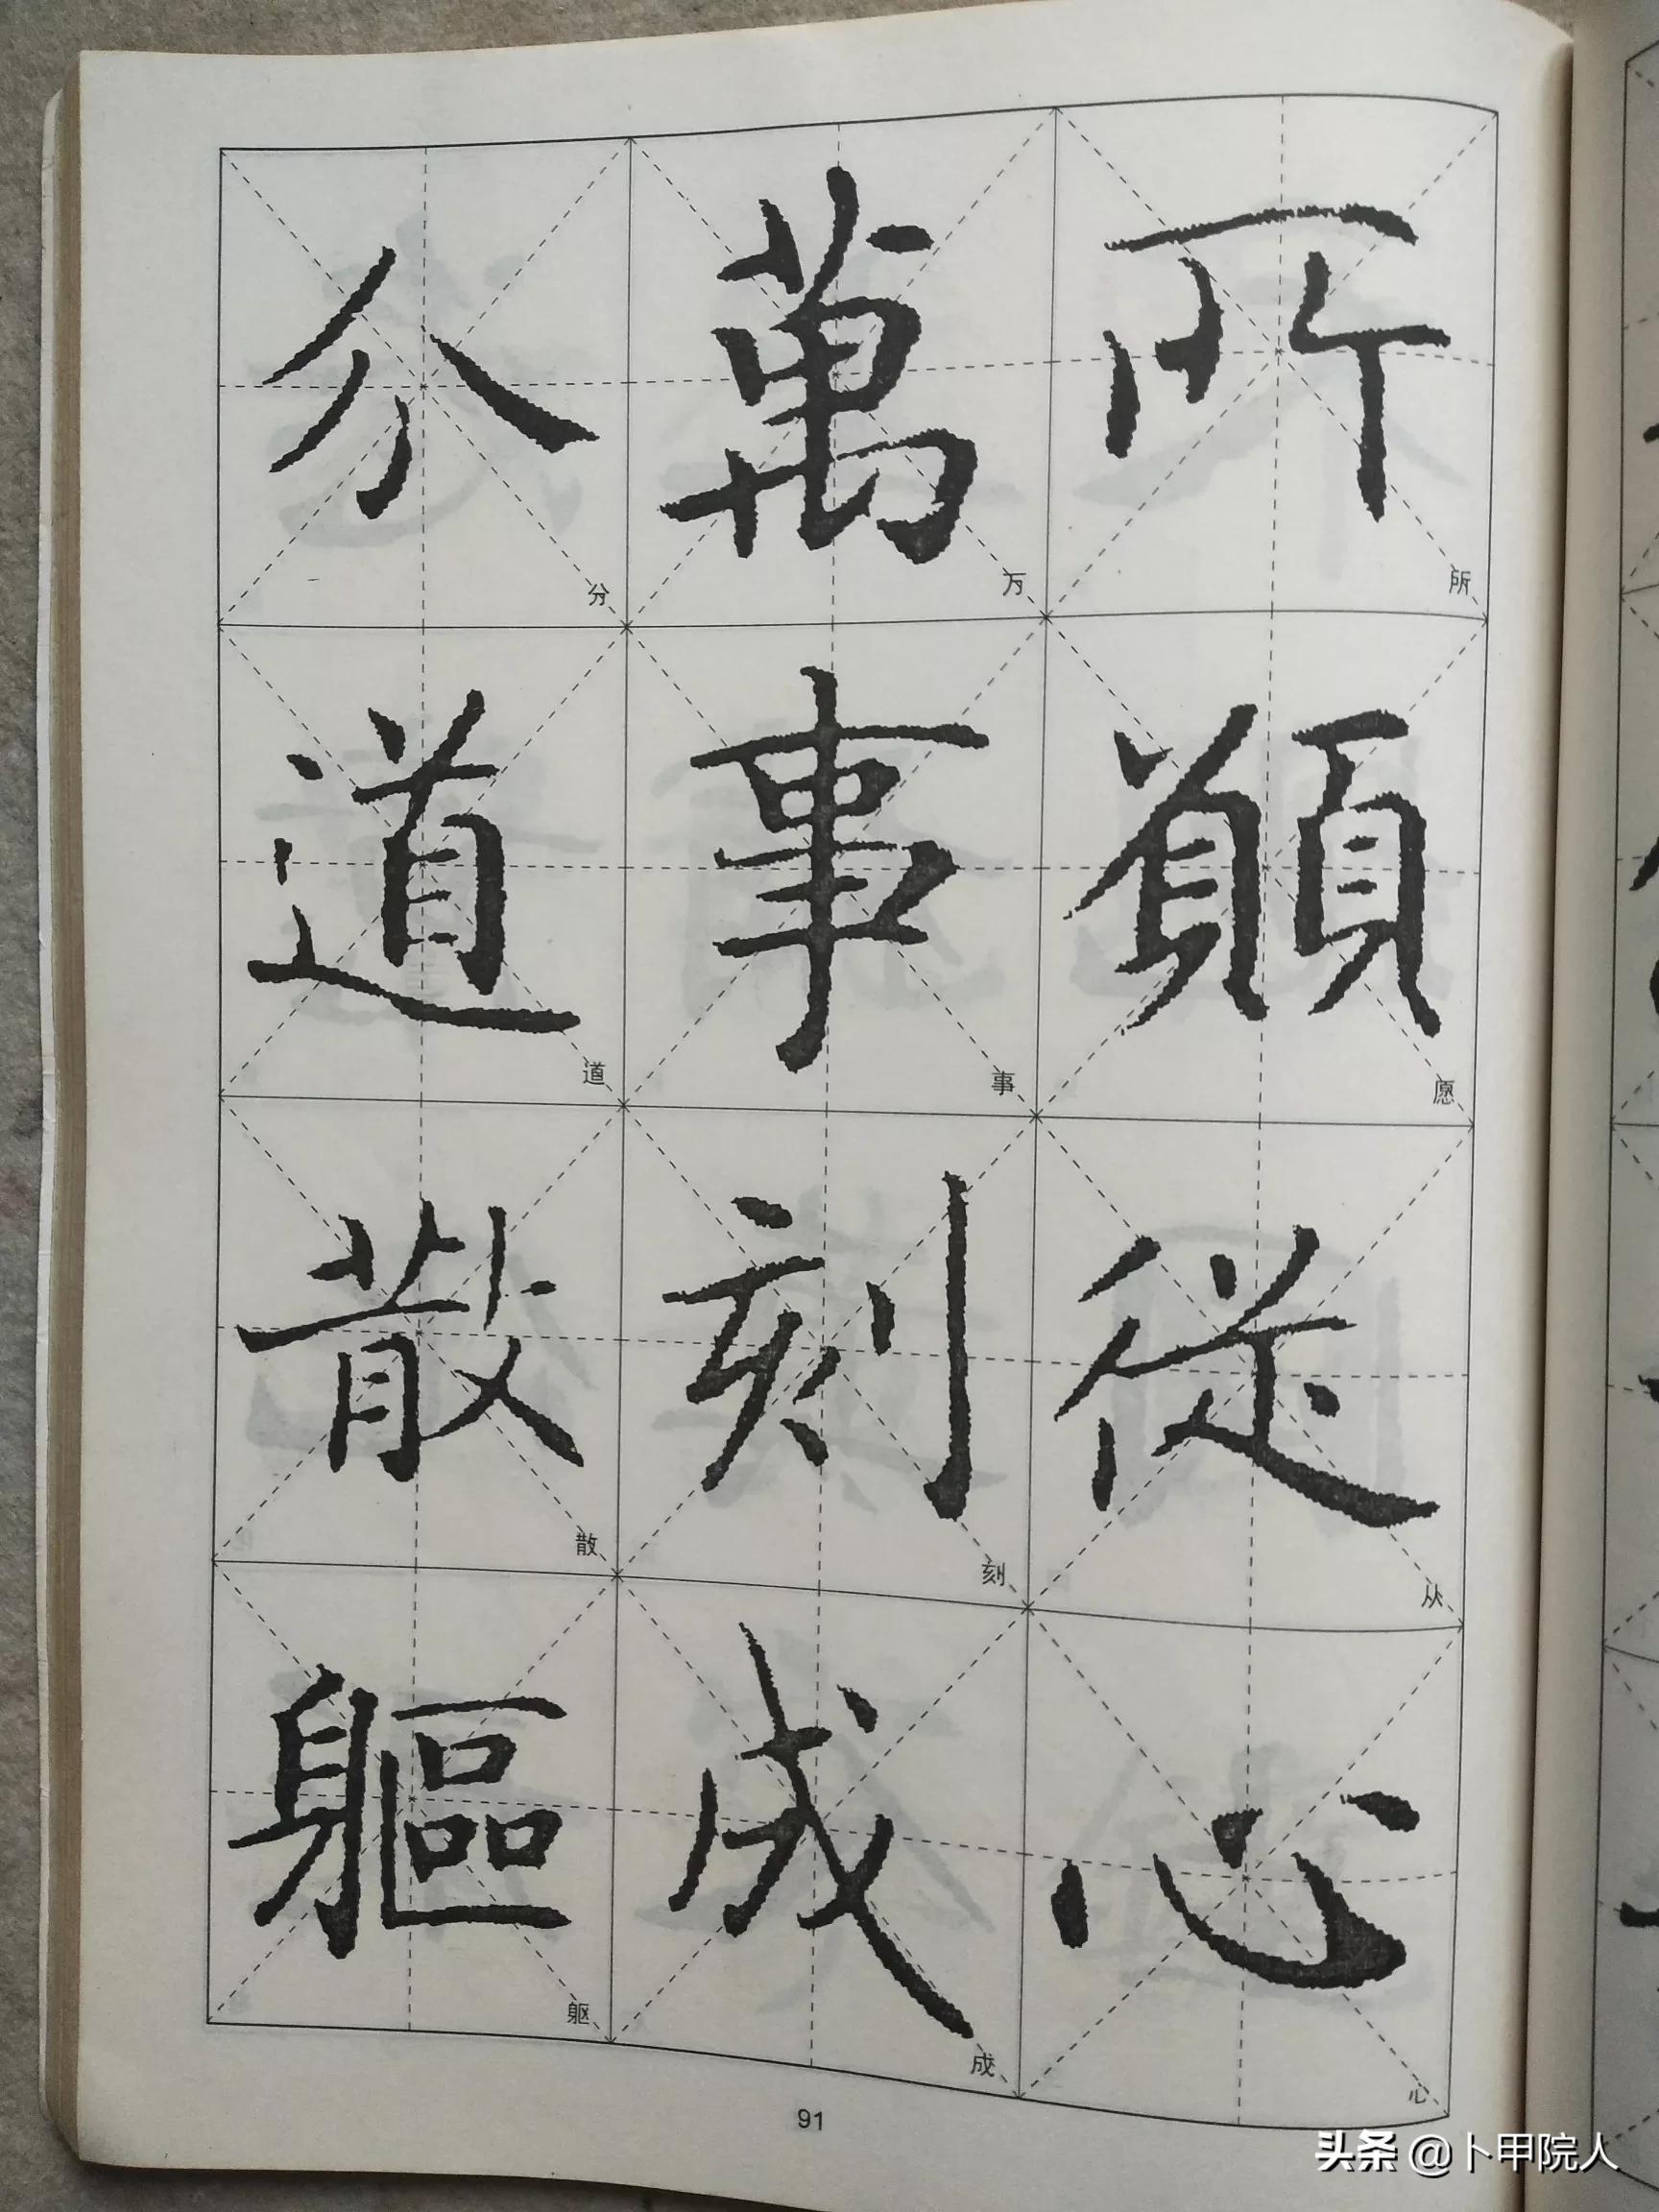 所願從心
所愿从心
萬事刻成
万事刻成
分道散軀
分道散躯
91
头条 @卜甲院人